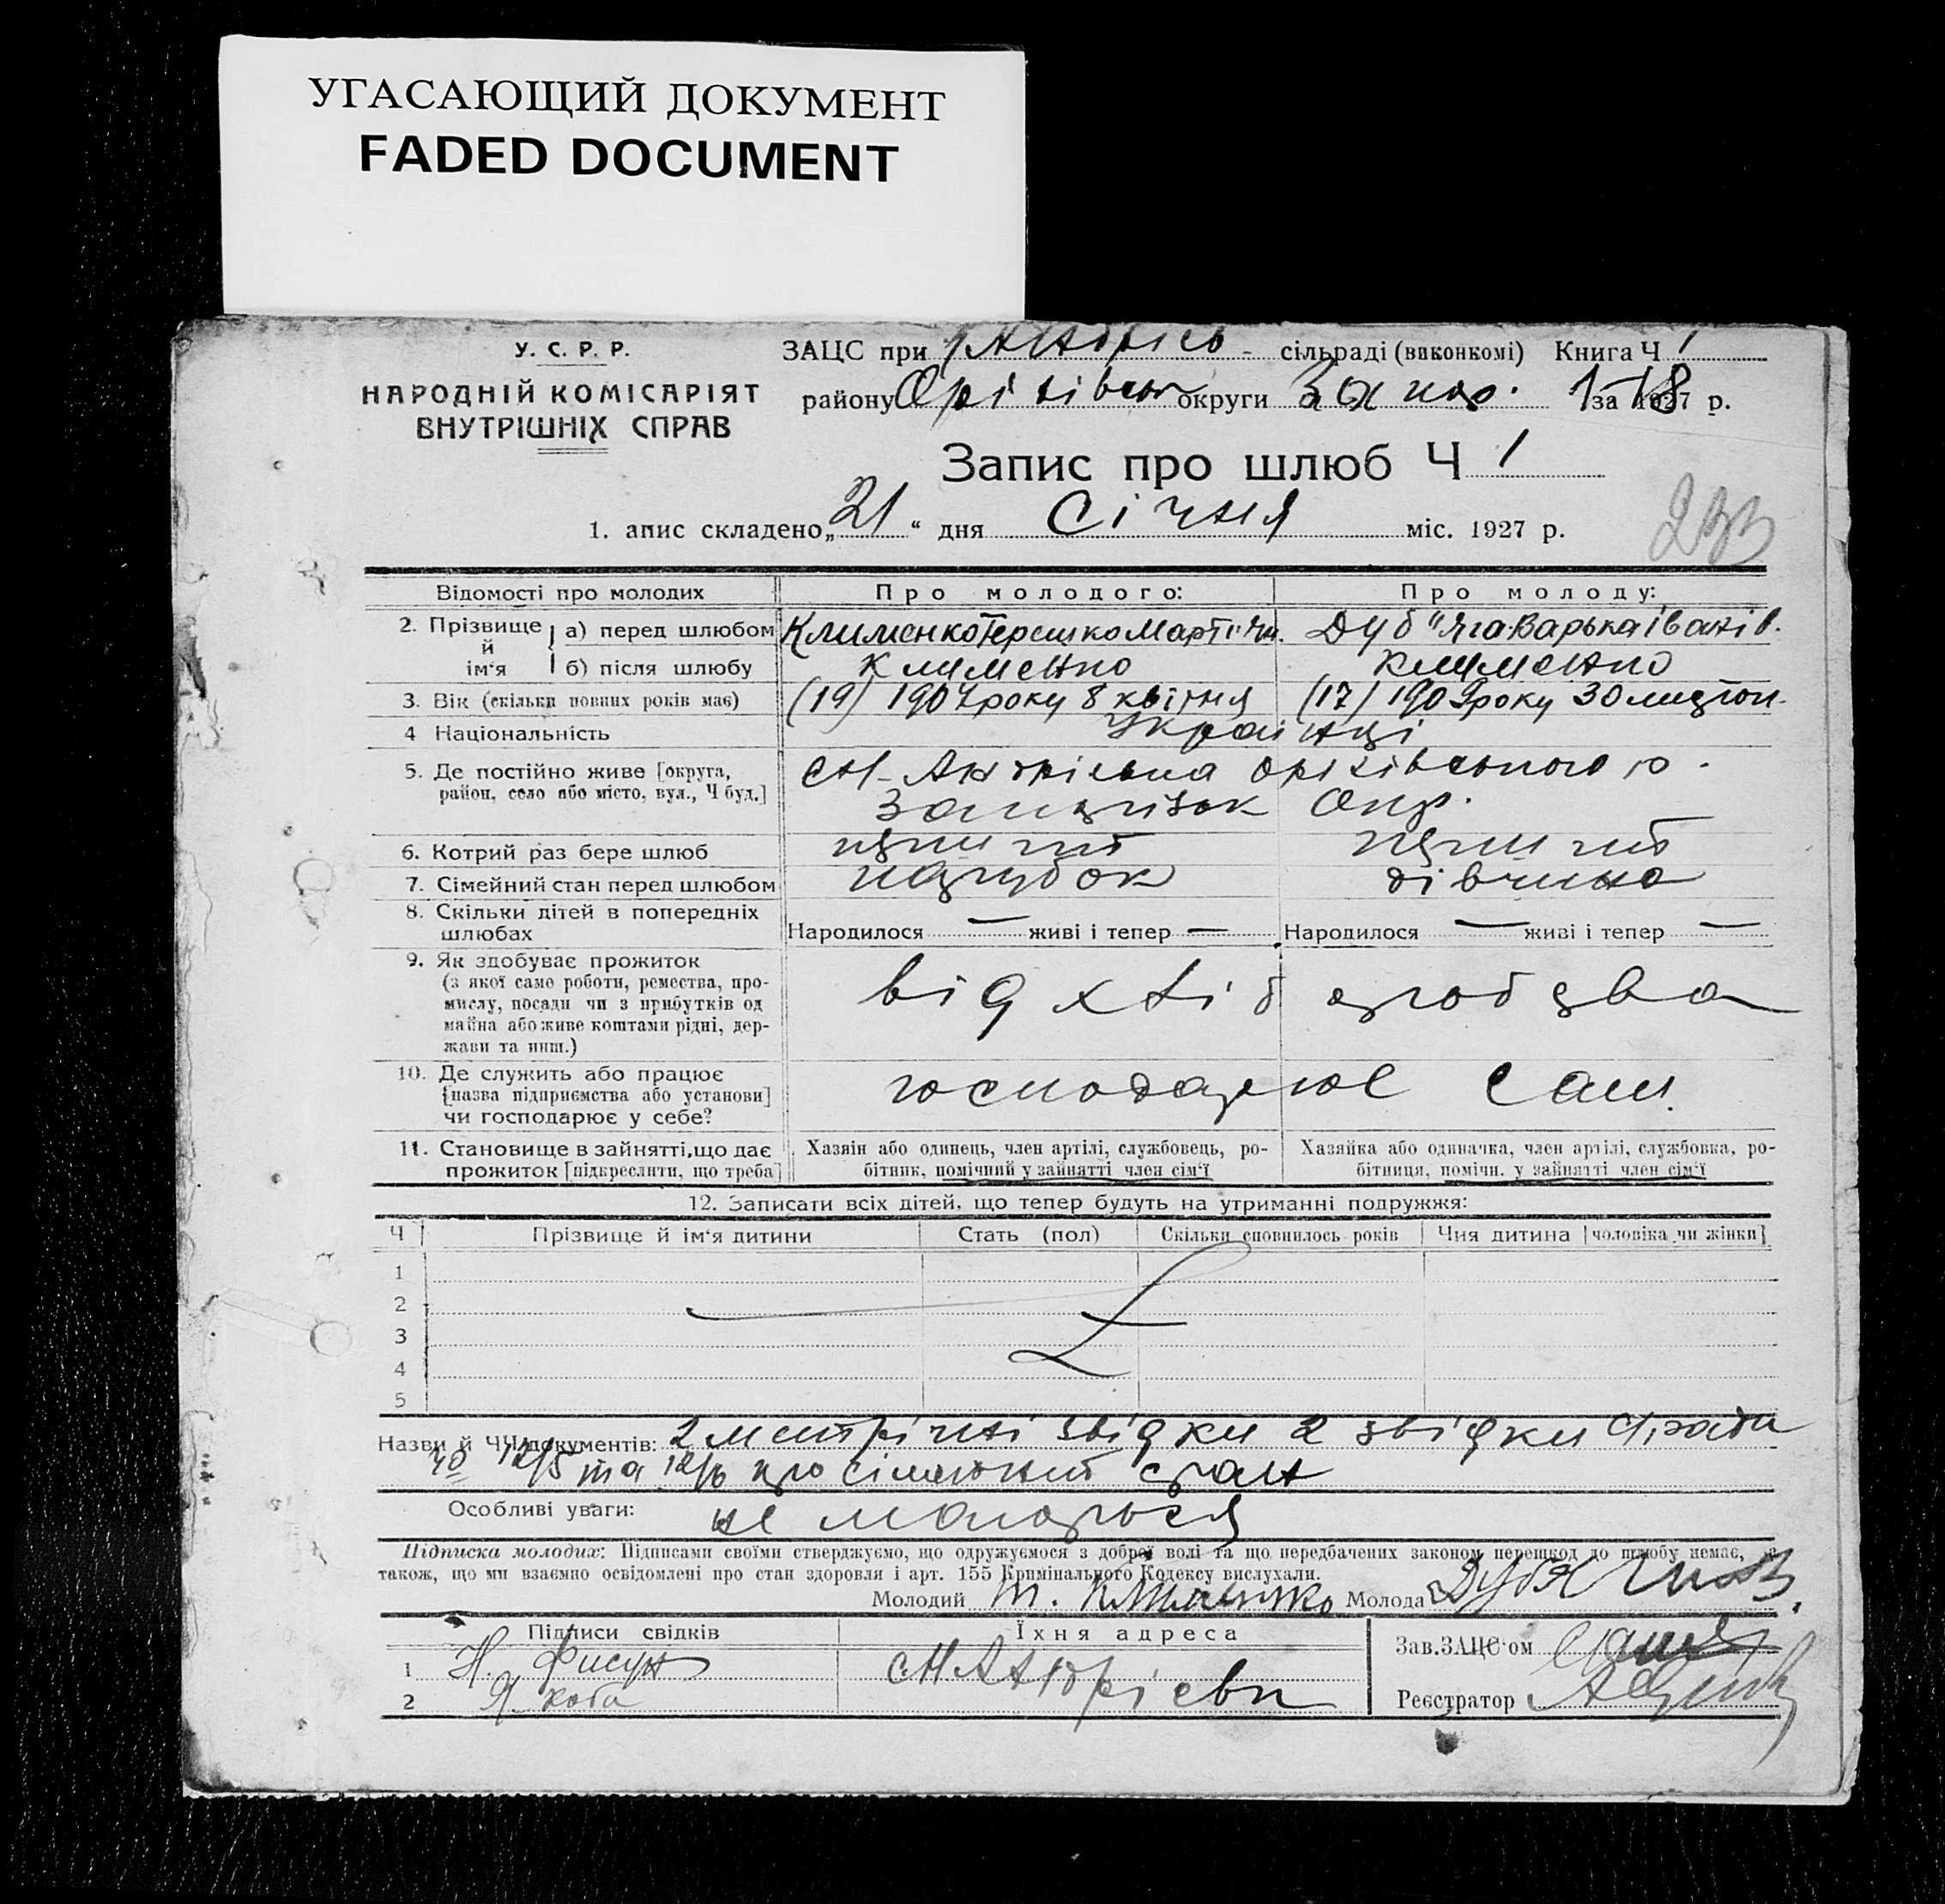 УГАСАЮЩИЙ ДОКУМЕНТ
FADED DOCUMENT
У. С. Р. Р.
НАРОДНІЙ КОМІСАРІЯТ
ВНУТРІШНІХ СПРАВ
ЗАЦС при сільраді (виконкомі) Книга Ч 1
району Оріхівськ округи Запор. за 1927 р.
Запис про шлюб Ч 1
1. апис складено „21“ дня Січня міс. 1927 р.
Відомості про молодих Про молодого: Про молоду:
2. Прізвище й ім‘я а) перед шлюбом Клименко Терешко Марті Дуб"яга Варька Іванів.
б) після шлюбу Клименко Клименко
3. Вік (скільки повних років має) (19) 1907 року 8 квітня (17) 1909 року 30 листоп.
4 Національність Українці
5. Де постійно живе [округа, район, село або місто, вул., Ч буд.] с Н-Андріївка Оріхівського р.
Запоріжж Окр.
6. Котрий раз бере шлюб перший перший
7. Сімейний стан перед шлюбом парубок дівчина
8. Скільки дітей в попередніх шлюбах Народилося — живі і тепер — Народилося — живі і тепер —
9. Як здобуває прожиток
(з якої саме роботи, ремества, про-
мислу, посади чи з прибутків од
майна або живе коштами рідні, дер-
жави та инш.) від хліборобства
10. Де служить або працює
[назва підприємства або установи]
чи господарює у себе? господарює сам.
11. Становище в зайнятті, що дає прожиток [підкреслити, що треба]
Хазяїн або одинець, член артілі, службовець, ро-
бітник, помічний у зайнятті член сім‘ї
Хазяйка або одиначка, член артілі, службовка, ро-
бітниця, помічн. у зайнятті член сім‘ї
12. Записати всіх дітей, що тепер будуть на утриманні подружжя:
Ч Прізвище й ім‘я дитини Стать (пол) Скільки сповнилось років Чия дитина [чоловіка чи жінки]
1
2
3
4
5
Назви й ЧЧ документів: 2 метрічні звідки 2 звідки С/ради
12/5 та 12/6 про сімейний стан
Особливі уваги: не мається
Підписка молодих: Підписами своїми стверджуємо, що одружуємося з доброї волі та що передбачених законом перешкод до шлюбу немає, а
також, що ми взаємно освідомлені про стан здоровля і арт. 155 Кримінального Кодексу вислухали.
Молодий Т. Клименко Молода
Підписи свідків Їхня адреса Зав.ЗАЦС‘ом
1 Н. Фисун с. Н Андрієвк
2 Я Коба Реєстратор